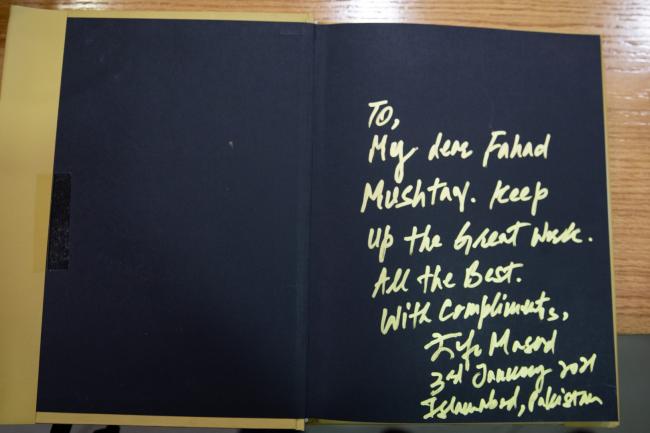 To,
My dear Fahad
Mushtaq. Keep
Up the Great Work.
All the Best.
With Compliments,
Masood
3rd January 2021
Islamabad, Pakistan